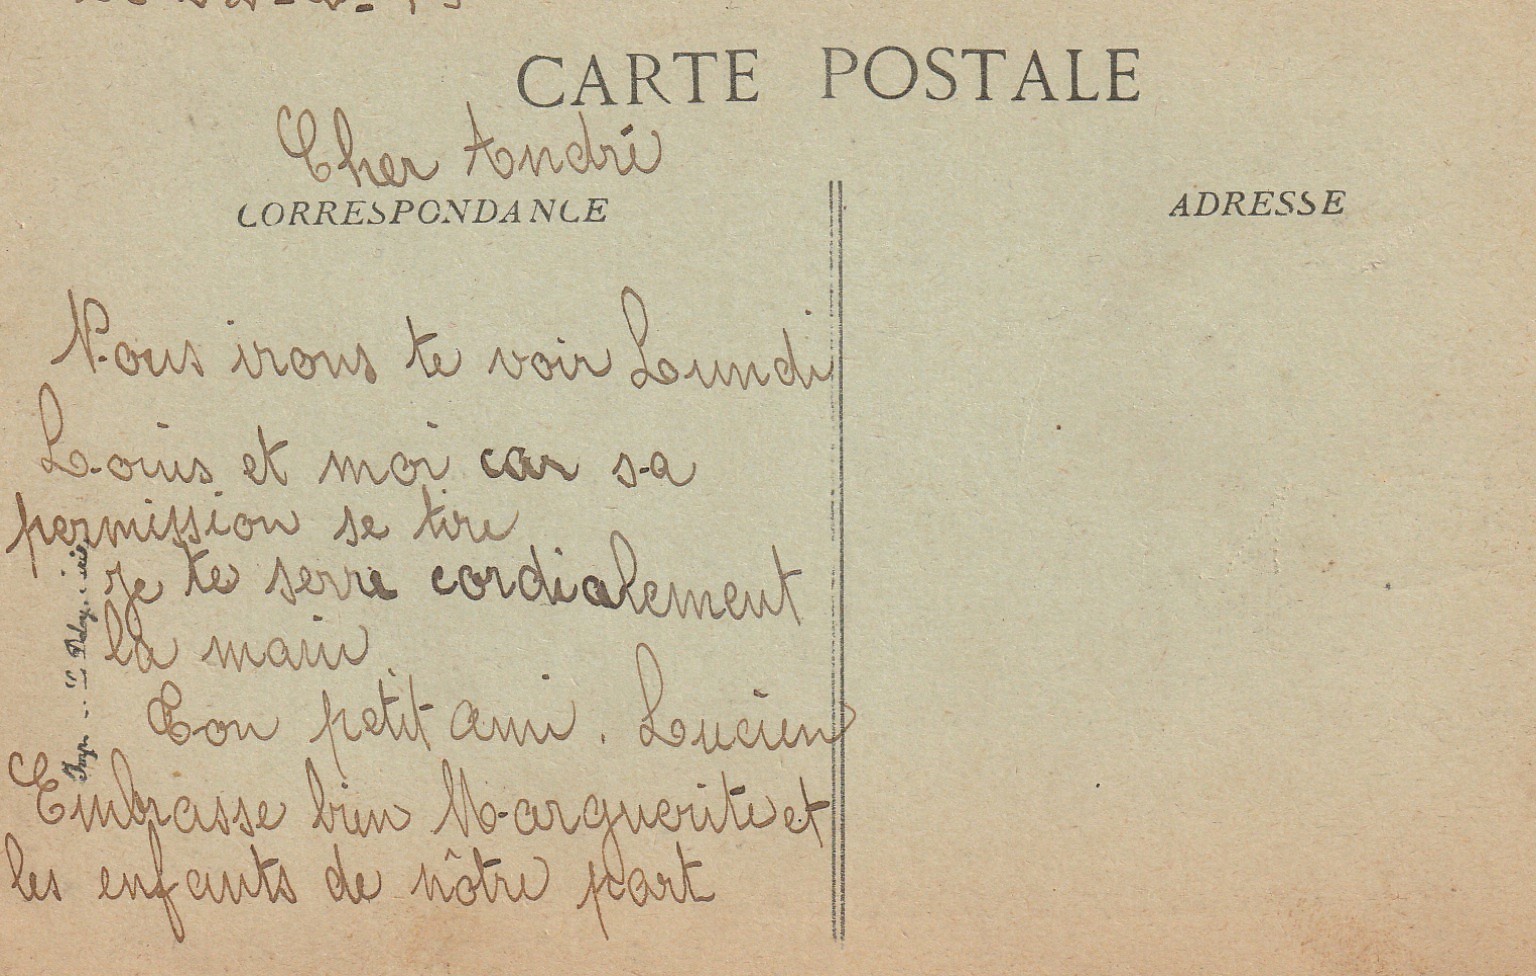 CARTE POSTALE
Cher André
CORRESPONDANCE
ADRESSE
Nous irons te voir Lundi
Louis et moi car sa
permission se tire
je te serre cordialement
la main
Ton petit ami. Lucien
Embrasse bien Marguerite et
les enfants de nôtre part